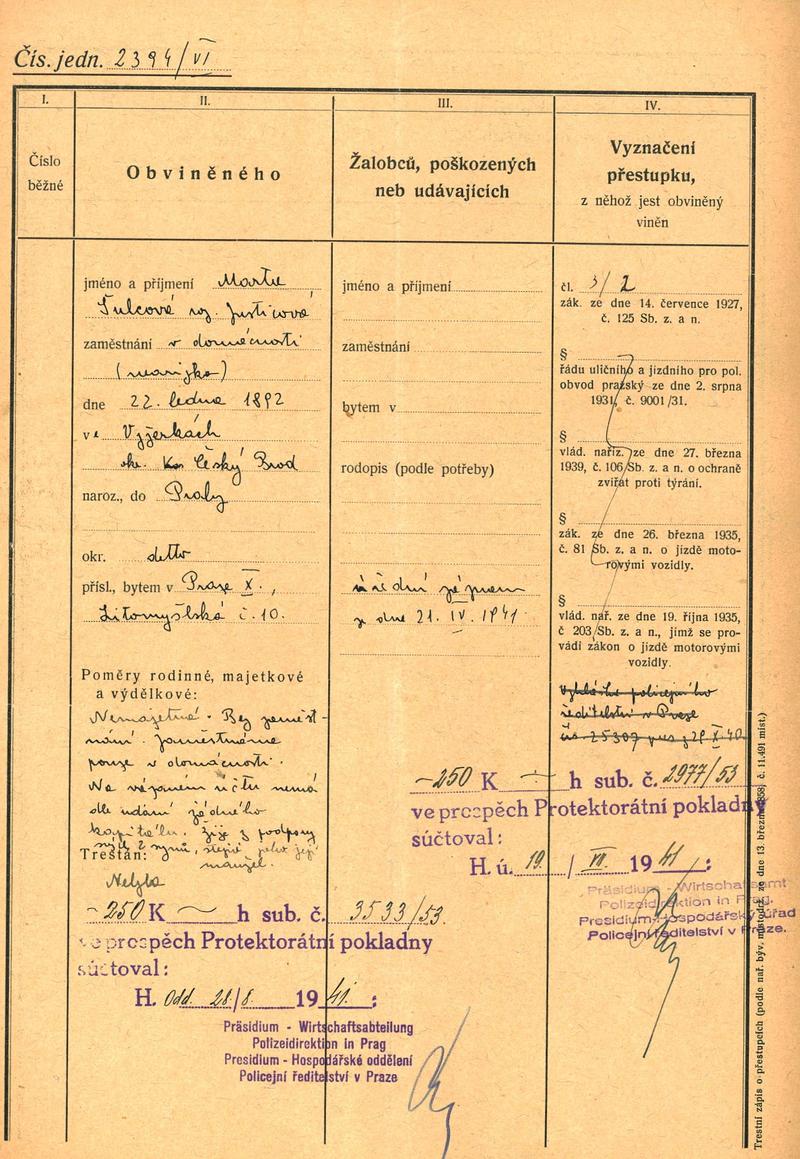 Čís. jedn. 2394/VI
I.
II.
III.
IV.
Číslo
běžné
Obviněného
Žalobců, poškozených
neb udávajících
Vyznačení
přestupku,
z něhož jest obviněný
viněn
jméno a příjmení Marta
Šulcová roz. Justicová
zaměstnání v domácnosti
dne 22. ledna 1892
ve Vyžerkách
okr. Český Brod
naroz., do Prahy
okr. detto
přísl., bytem v Praze X.,
Litomyšlská č. 10.
Poměry rodinné, majetkové
a výdělkové:
Nemajetná. Bez zaměst-
nání. Zaměstnána
pouze v domácnosti.
Na vázaném účtu nemá
dle udání žádného
kapitálu. Žije z podpory
svých 2 synů, stejně jako její
manžel.
Trestán:
Nebyla
-250 K h sub. č. 3533/53.
ve prospěch Protektorátní pokladny
súčtoval:
H. odd. 28/8. 1941:
Präsidium - Wirtschaftsabteilung
Polizeidirektion in Prag
Presidium - Hospodářské oddělení
Policejní ředitelství v Praze
jméno a příjmení
zaměstnání
bytem v
rodopis (podle potřeby)
úřední záznam
z dne 21. IV. 1941
čl. 3/2
zák. ze dne 14. července 1927,
č. 125 Sb. z. a n.
§
řádu uličního a jízdního pro pol.
obvod pražský ze dne 2. srpna
1931, č. 9001/31.
§
vlád. naříz. ze dne 27. března
1939, č. 106 Sb. z. a n. o ochraně
zvířat proti týrání.
§
zák. ze dne 26. března 1935,
č. 81 Sb. z. a n. o jízdě moto-
rovými vozidly.
§
vlád. nař. ze dne 19. října 1935,
č 203 Sb. z. a n., jímž se pro-
vádí zákon o jízdě motorovými
vozidly.
Vyhláška policejního
ředitelství v Praze
-250 K h sub. č. 2977/53
ve prospěch Protektorátní pokladny
súčtoval:
H. ú. 19. / VII. 1941:
Präsidium - Wirtschaftsamt
Polizeidirektion in Prag.
Presidium-Hospodářský úřad
Policejní ředitelství v Praze.
Trestní zápis o přestupcích (podle nař. býv. místodrž. ze dne 13. března 1858, č. 11.491 míst.)